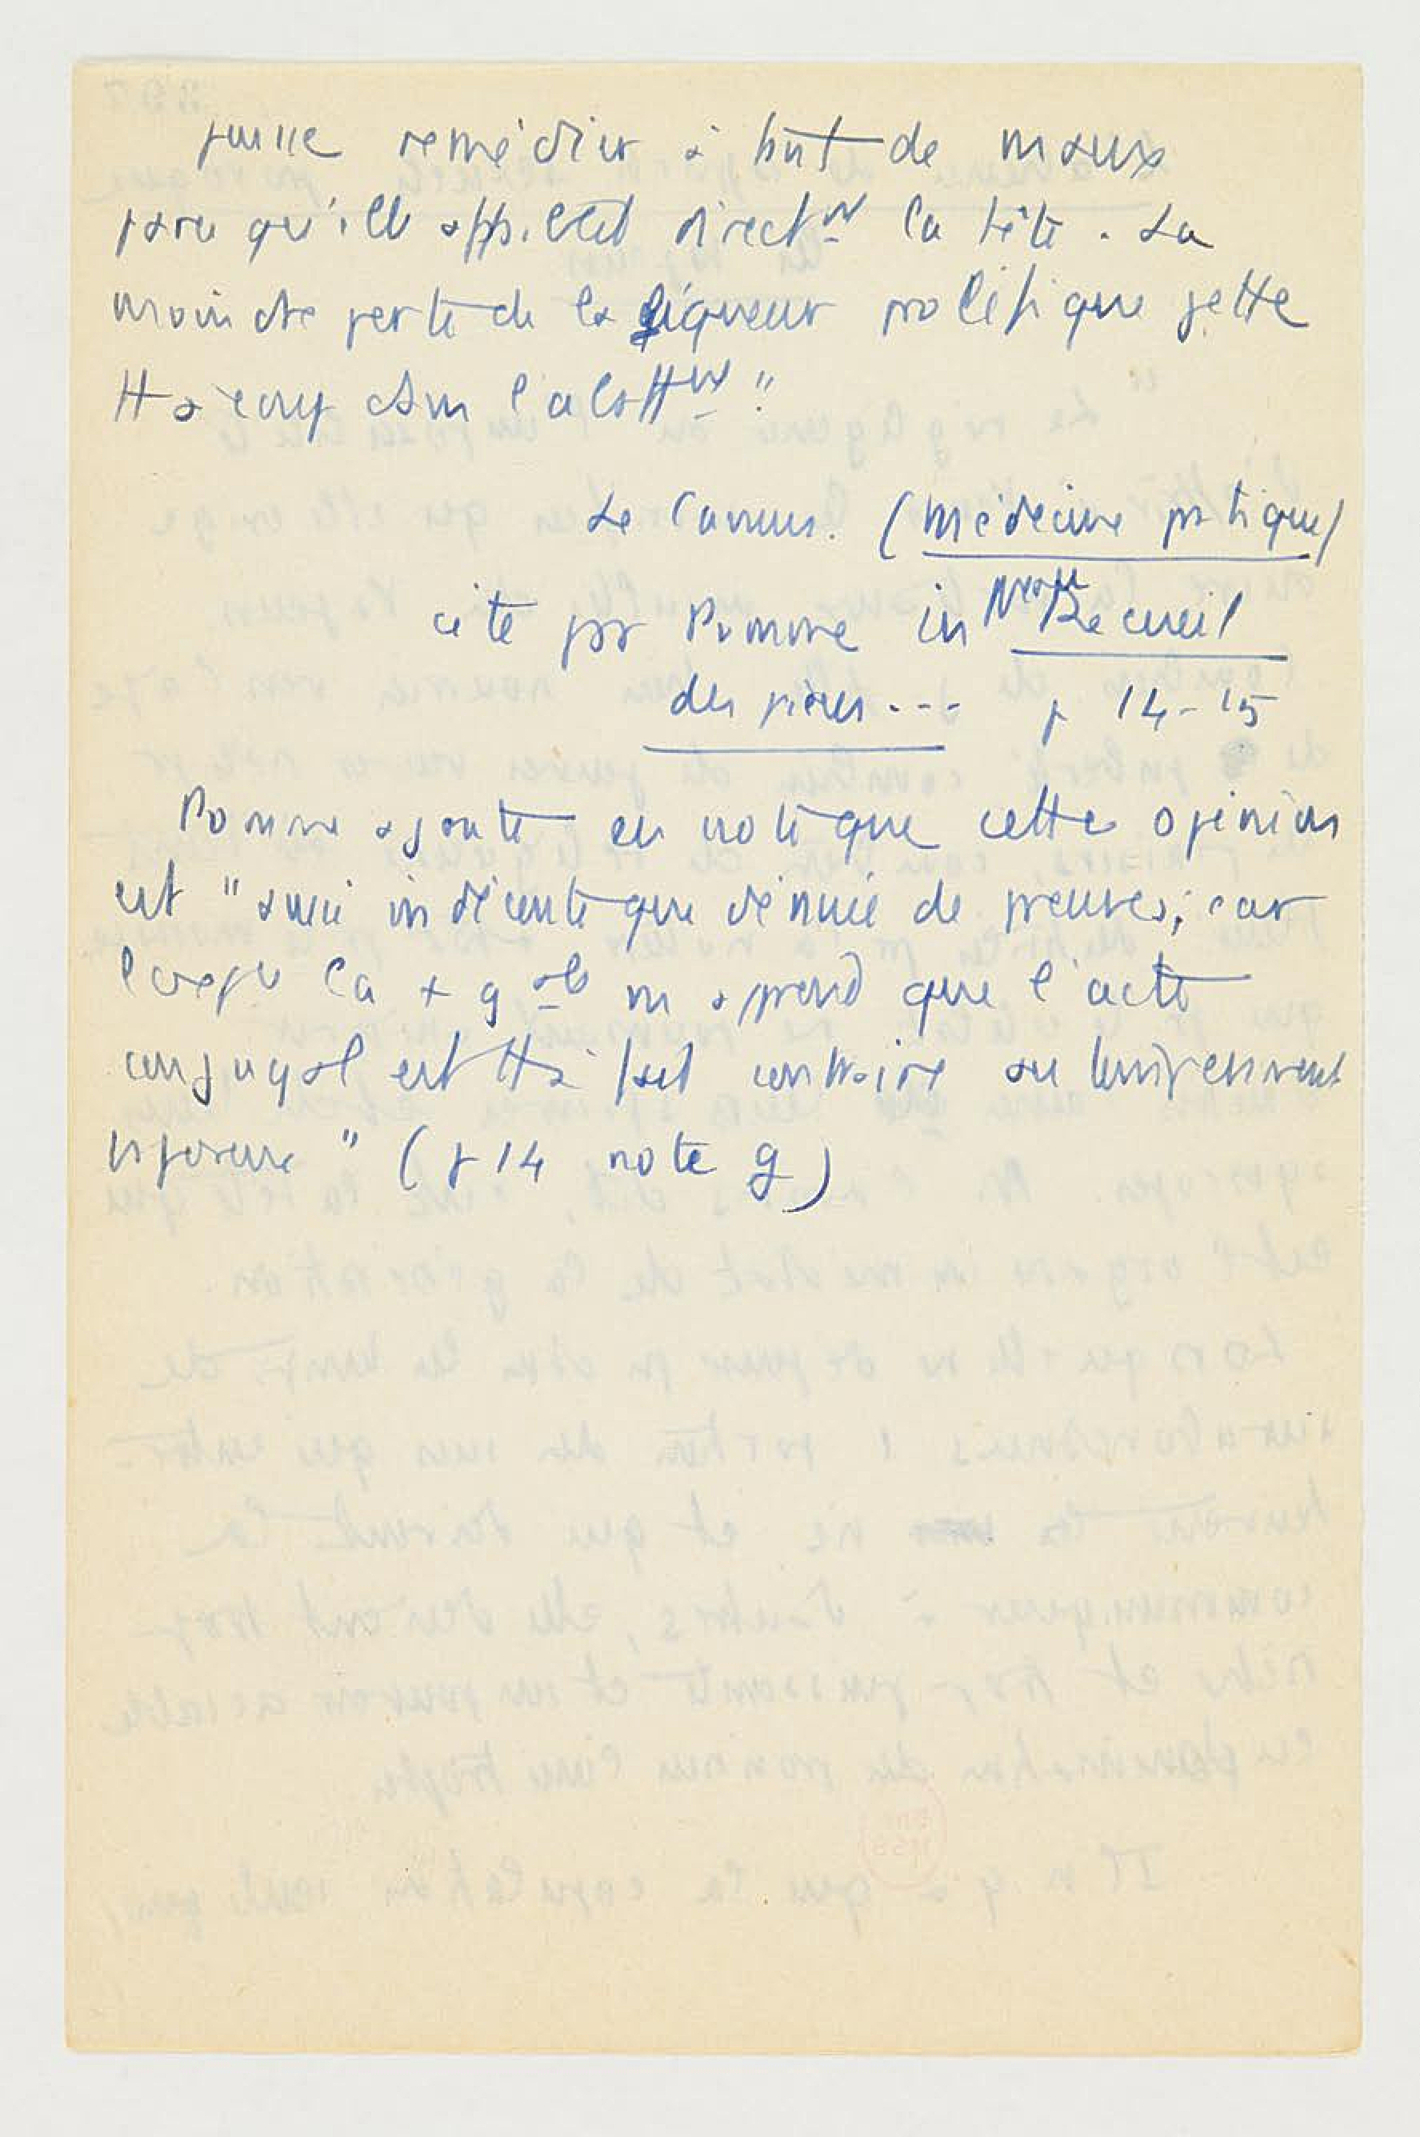 puisse remédier à tout de maux
parce qu'elle affaiblit direct^nt la tête. La
moindre perte de la liqueur prolifique jette
tt à coup dans l'abatt^nt"
Le Camus. (Médecine pratique)
cité par Pomme in Nveau Recueil
des pièces --- p 14-15
Pomme ajoute en note que cette opinion
est "aussi indécente que dénuée de preuves; car
l'expce la + g^ale ns apprend que l'acte
conjugal est tt à fait contraire au tempérament
vaporeux" (p 14 note g)